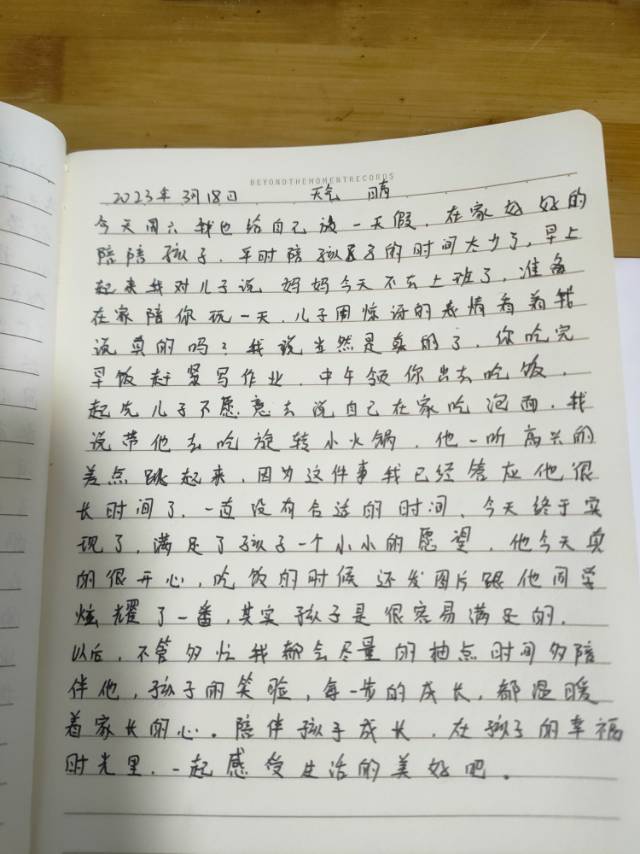 BEYONDTHEMOMENTRECORDS
2023年3月18日 天气 晴
今天周六我也给自己放一天假，在家好好的
陪陪孩子，平时陪孩子的时间太少了，早上
起来我对儿子说 妈妈今天不去上班了，准备
在家陪你玩一天，儿子用惊讶的表情看着我
说真的吗？我说当然是真的了，你吃完
早饭赶紧写作业，中午领你出去吃饭，
起先儿子不愿意去说自己在家吃泡面，我
说带他去吃旋转小火锅，他一听高兴的
差点跳起来，因为这件事我已经答应他很
长时间了，一直没有合适的时间，今天终于实
现了，满足了孩子一个小小的愿望，他今天真
的很开心，吃饭的时候还发图片跟他同学
炫耀了一番，其实孩子是很容易满足的，
以后，不管多忙我都会尽量的抽点时间多陪
伴他，孩子的笑脸，每一步的成长，都温暖
着家长的心。陪伴孩子成长，在孩子的幸福
时光里，一起感受生活的美好吧。